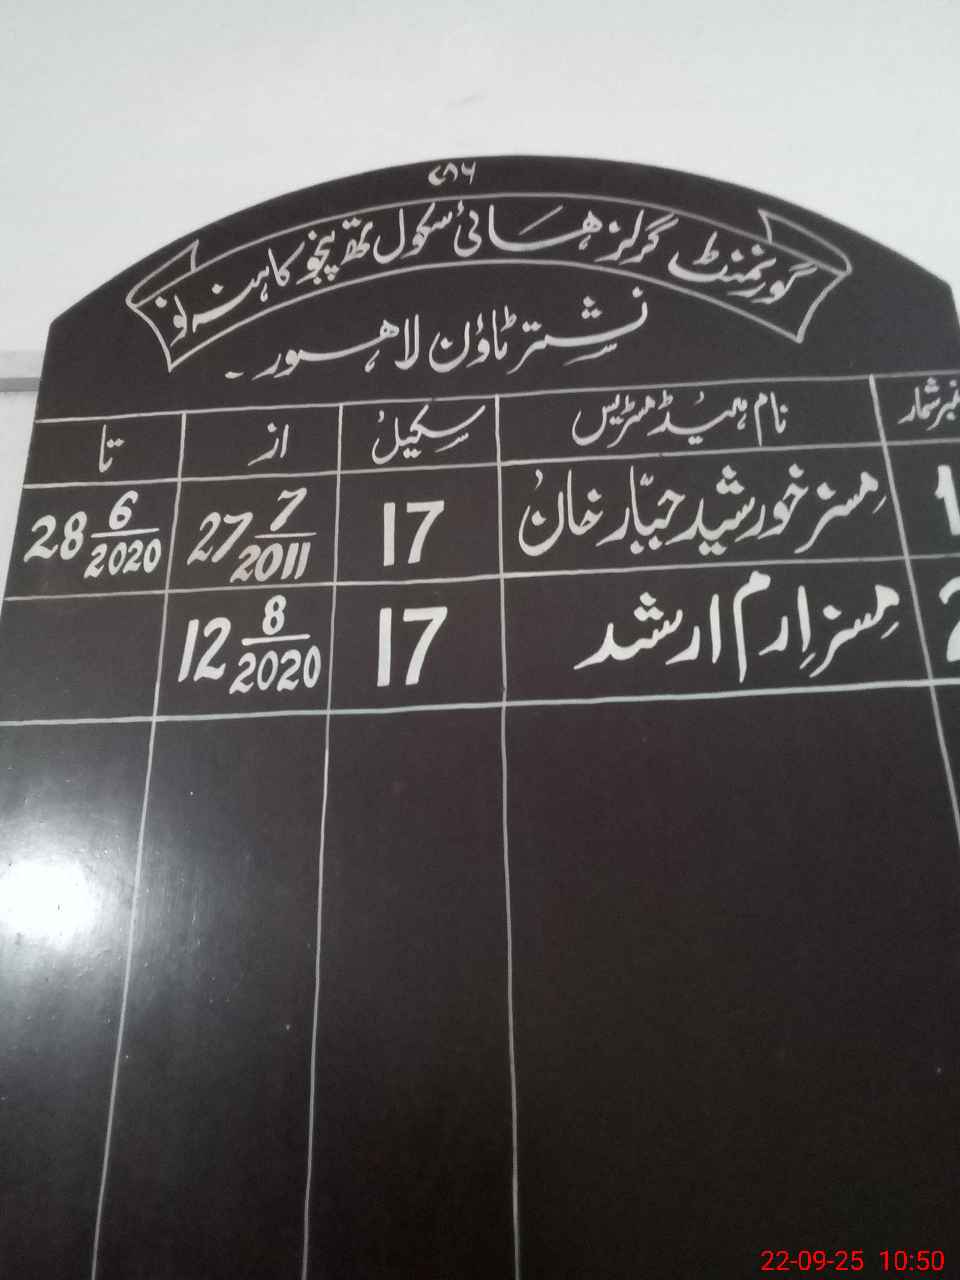 ۷۸۶
گورنمنٹ گرلز ہائی سکول تھ پنجو کاہنہ نو
نشتر ٹاؤن لاہور۔
نمبر شمار نام ہیڈ مسٹریس سکیل از تا
1 مسز خورشید جبّار خان 17 27 7/2011 28 6/2020
2 مسز اِرم ارشد 17 12 8/2020
22-09-25 10:50